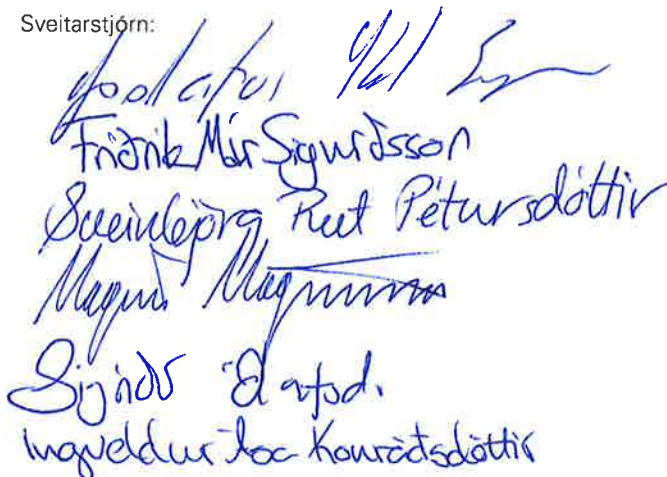 Sveitarstjórn:
Friðrik Már Sigurðsson
Sveinbjörg Rut Pétursdóttir
Magnús Magnússon
Sigríður Ólafsd.
Ingveldur Ása Konráðsdóttir